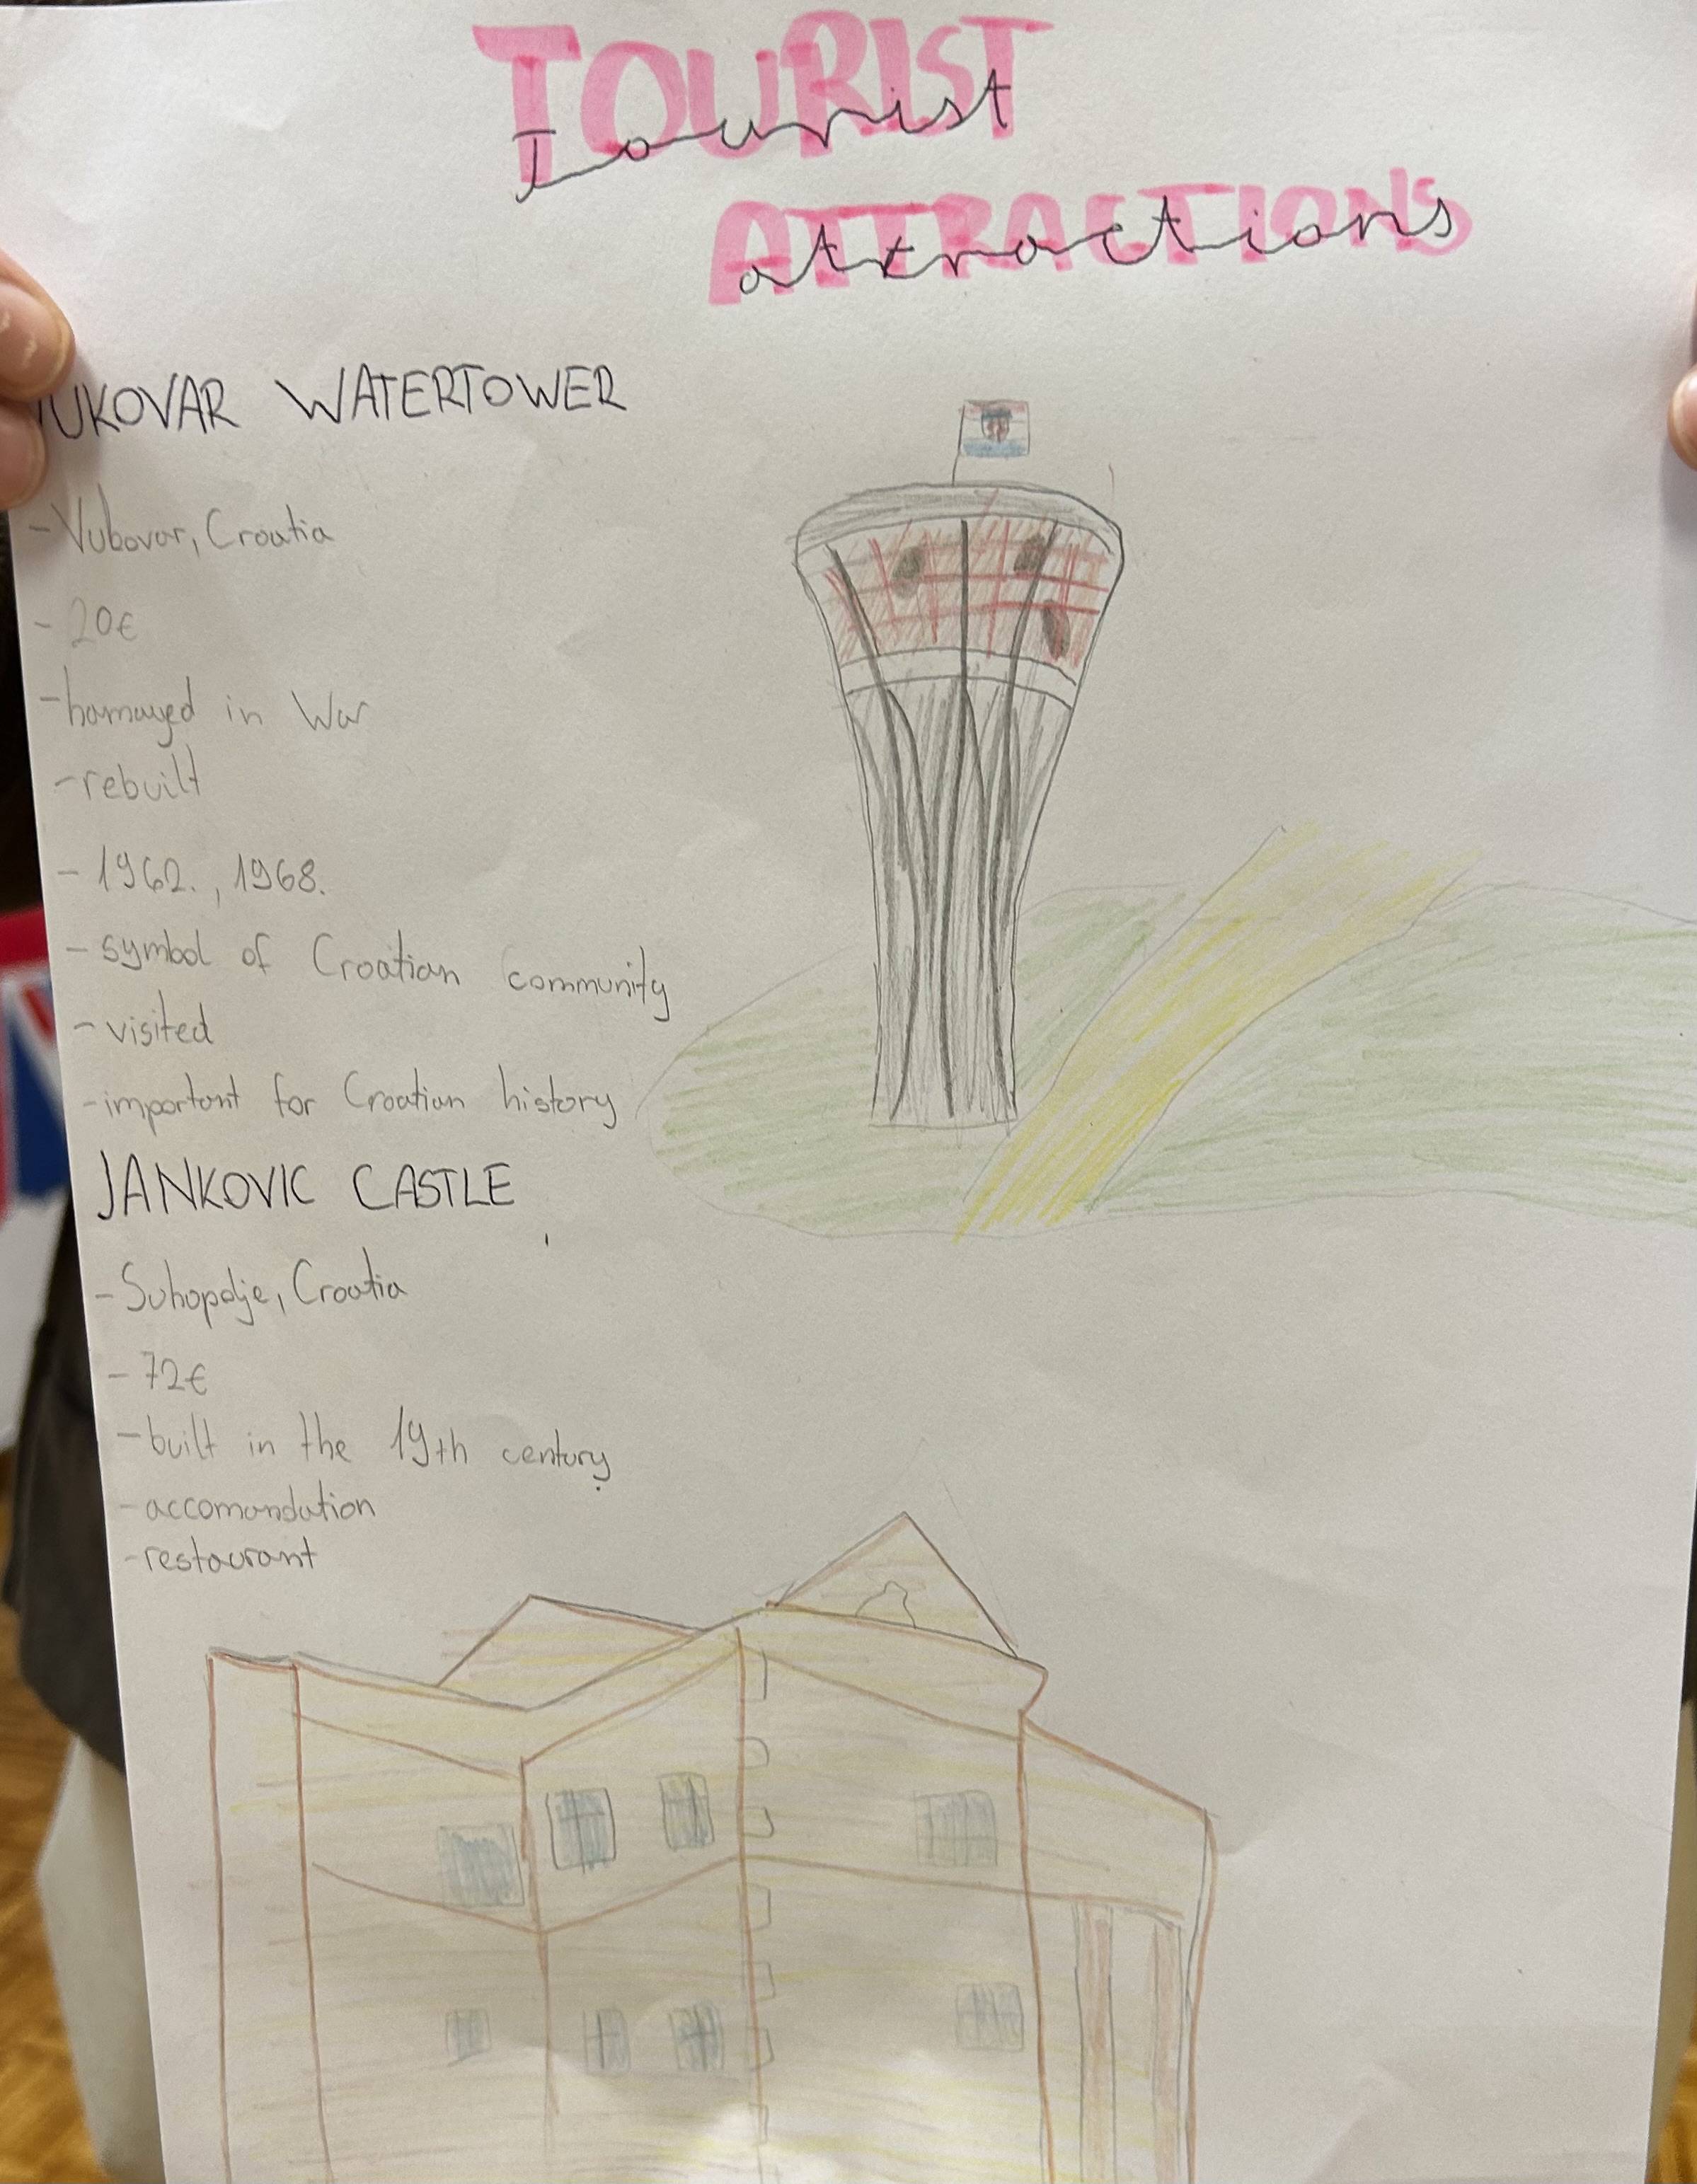 TOURIST
Tourist
ATTRACTIONS
attractions
VUKOVAR WATERTOWER
- Vukovar, Croatia
- 20€
- hamayed in War
- rebuilt
- 1962., 1968.
- symbol of Croatian community
- visited
- important for Croatian history
JANKOVIC CASTLE
- Suhopolje, Croatia
- 72€
- built in the 19th century
- accomondation
- restaurant